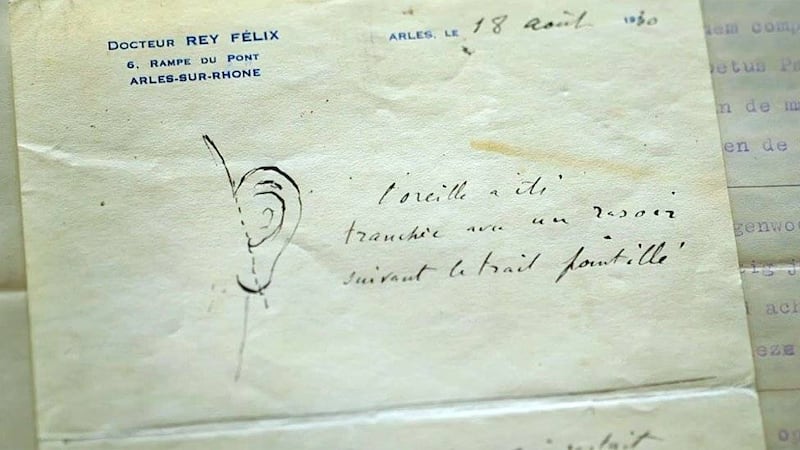 DOCTEUR REY FÉLIX
6, RAMPE DU PONT
ARLES-SUR-RHONE
ARLES, LE 18 août 1930
l'oreille a été
tranchée avec un rasoir
suivant le trait pointillé
em comp
etus Pa
n de ma
en de
genwo
ig j
ach
eze
og